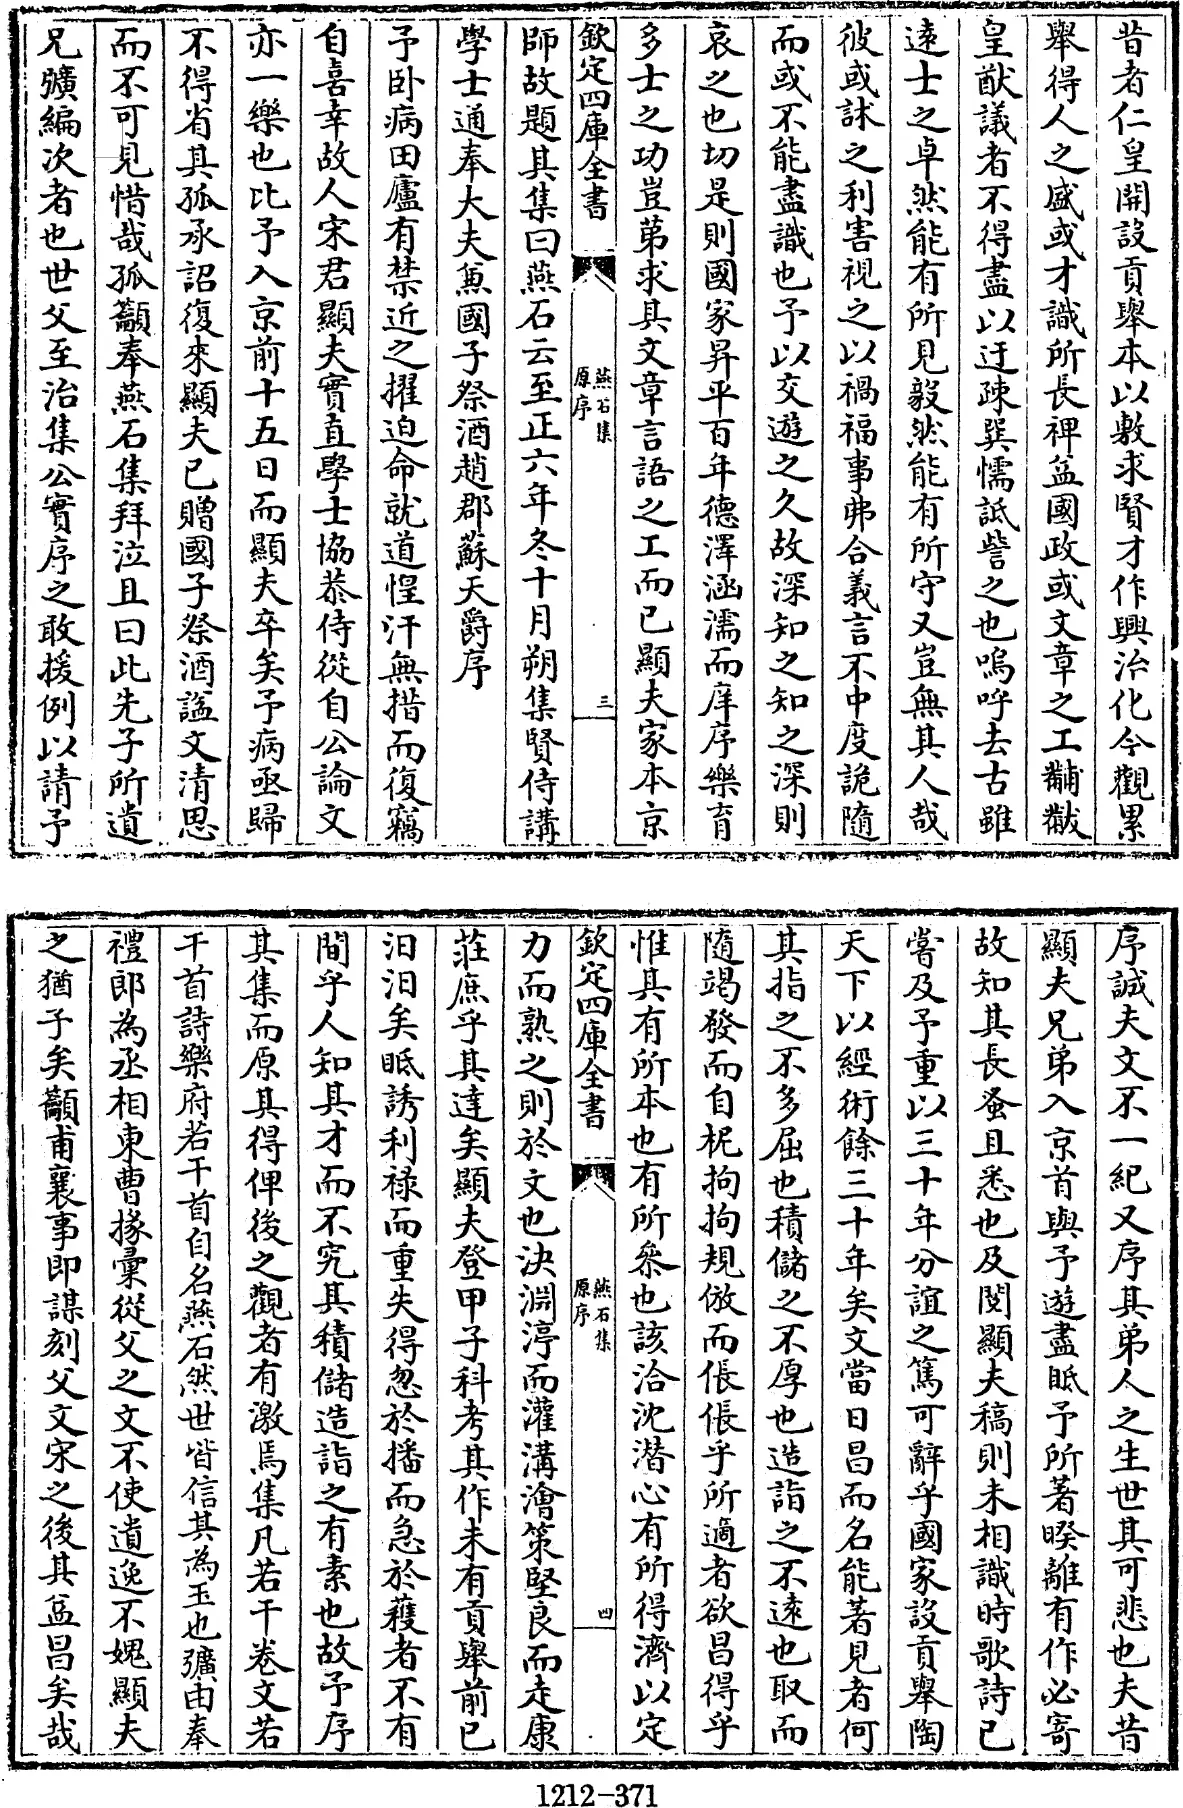 昔者仁皇開設貢舉本以敷求賢才作興治化今觀累
舉得人之盛或才識所長裨益國政或文章之工黼黻
皇猷議者不得盡以迂疎巽懦詆訾之也嗚呼去古雖
遠士之卓然能有所見毅然能有所守又豈無其人哉
彼或訹之利害視之以禍福事弗合義言不中度詭隨
而或不能盡識也予以交遊之久故深知之知之深則
哀之也切是則國家昇平百年德澤涵濡而庠序樂育
多士之功豈苐求其文章言語之工而已顯夫家本京
欽定四庫全書
燕石集
原序
三
師故題其集曰燕石云至正六年冬十月朔集賢侍講
學士通奉大夫兼國子祭酒趙郡蘇天爵序
予卧病田廬有禁近之擢迫命就道惶汗無措而復竊
自喜幸故人宋君顯夫實直學士協恭侍從自公論文
亦一樂也比予入京前十五日而顯夫卒矣予病亟歸
不得省其孤承詔復來顯夫已贈國子祭酒諡文清思
而不可見惜哉孤籲奉燕石集拜泣且曰此先子所遺
兄彍編次者也世父至治集公實序之敢援例以請予
序誠夫文不一紀又序其弟人之生世其可悲也夫昔
顯夫兄弟入京首與予遊盡眂予所著暌離有作必寄
故知其長蚤且悉也及閱顯夫稿則未相識時歌詩已
嘗及予重以三十年分誼之篤可辭乎國家設貢舉陶
天下以經術餘三十年矣文當日昌而名能著見者何
其指之不多屈也積儲之不厚也造詣之不遠也取而
隨竭發而自柅拘拘規倣而倀倀乎所適者欲昌得乎
惟其有所本也有所叅也該洽沈潛心有所得濟以定
欽定四庫全書
燕石集
原序
四
力而熟之則於文也決淵渟而灌溝澮策堅良而走康
莊庶乎其達矣顯夫登甲子科考其作未有貢舉前已
汩汩矣眂誘利祿而重失得忽於播而急於穫者不有
間乎人知其才而不究其積儲造詣之有素也故予序
其集而原其得俾後之觀者有激焉集凡若干卷文若
干首詩樂府若干首自名燕石然世皆信其為玉也彍由奉
禮郎為丞相東曹掾彙從父之文不使遺逸不媿顯夫
之猶子矣籲甫襄事即謀刻父文宋之後其益昌矣哉
1212-371